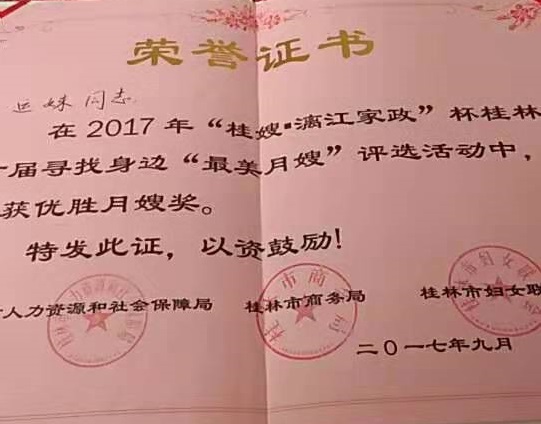 荣誉证书
运妹同志
在2017年“桂嫂·漓江家政”杯桂林
届寻找身边“最美月嫂”评选活动中，
获优胜月嫂奖。
特发此证，以资鼓励！
人力资源和社会保障局 桂林市商务局 桂林市妇女联
二〇一七年九月